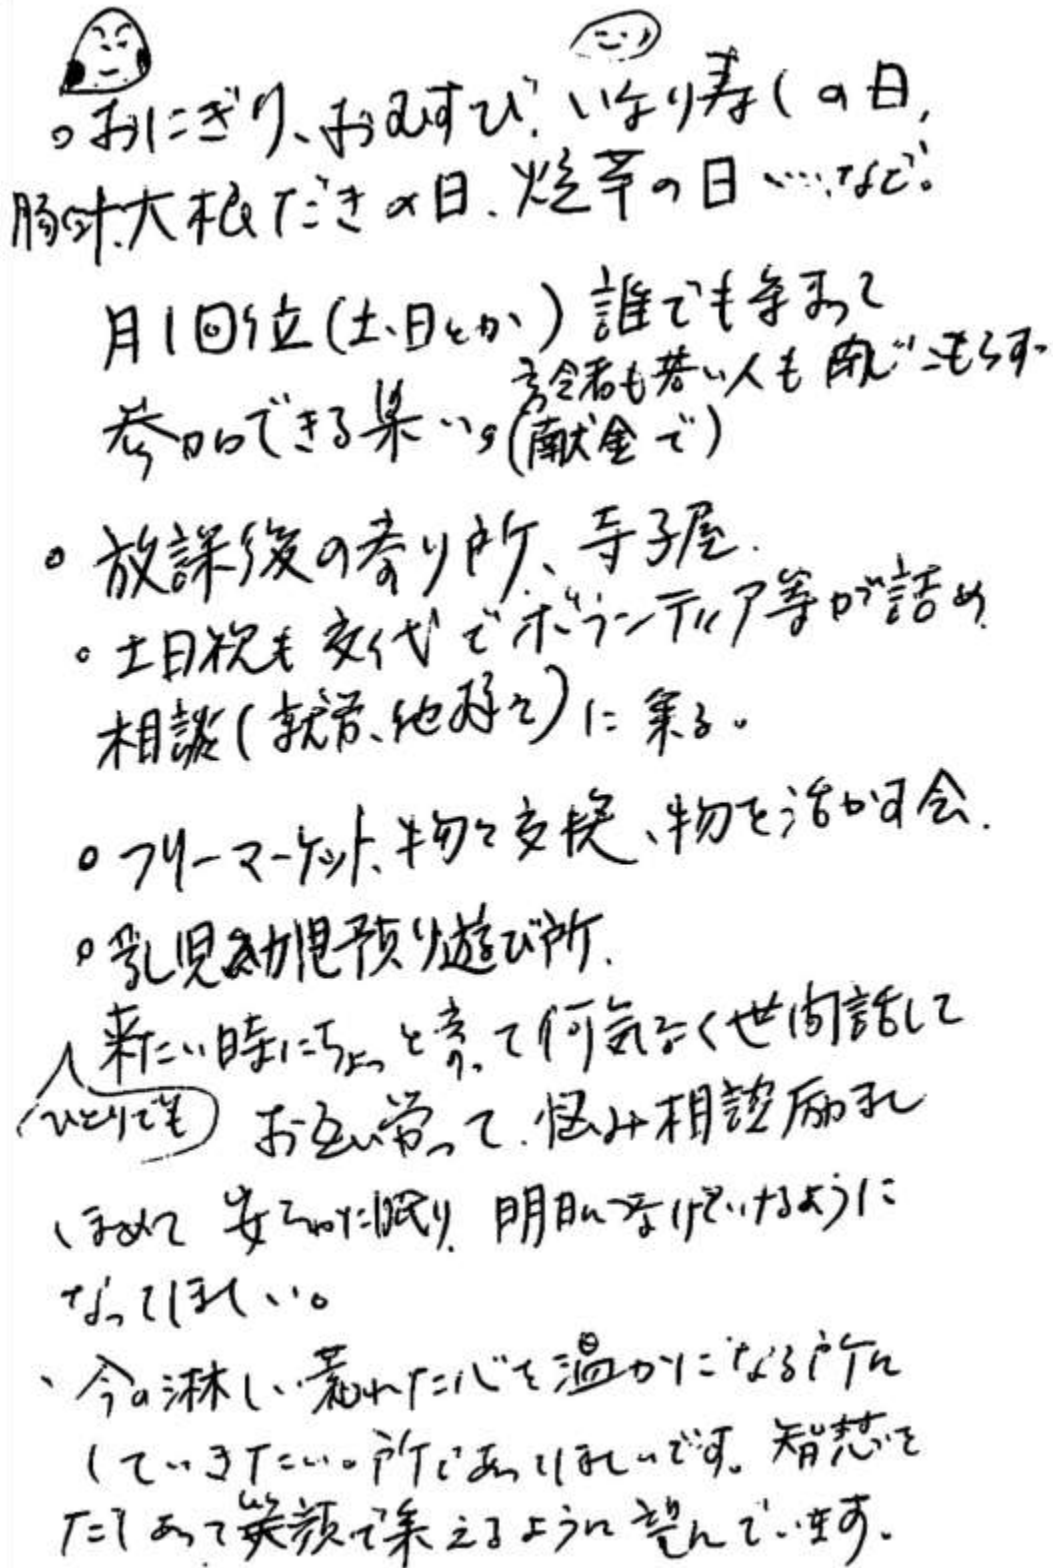 ○おにぎり、おむすび、いなり寿しの日、
豚汁、大根だきの日、焼芋の日……など。
月1回位(土、日とか)誰でも集まって
高令者も若い人も閉じこもらず
参加できる集い。(献金で)
○放課後の寄り所、寺子屋.
○土日祝も交代でボランティア等が詰め
相談(就労、他好々)に乗る。
○フリーマーケット、物々交換、物を活かす会.
○乳児幼児預り遊び所.
来たい時にちょっと寄って何気なく世間話して
ひとりでも
お互い労って、悩み相談励まし
ほめて 安らかに眠り、明日につなげていけるように
なってほしい。
、今の淋しい荒れた心を温かになる所に
していきたい。所であってほしいです。智慧を
だしあって笑顔で集えるように望んでいます。